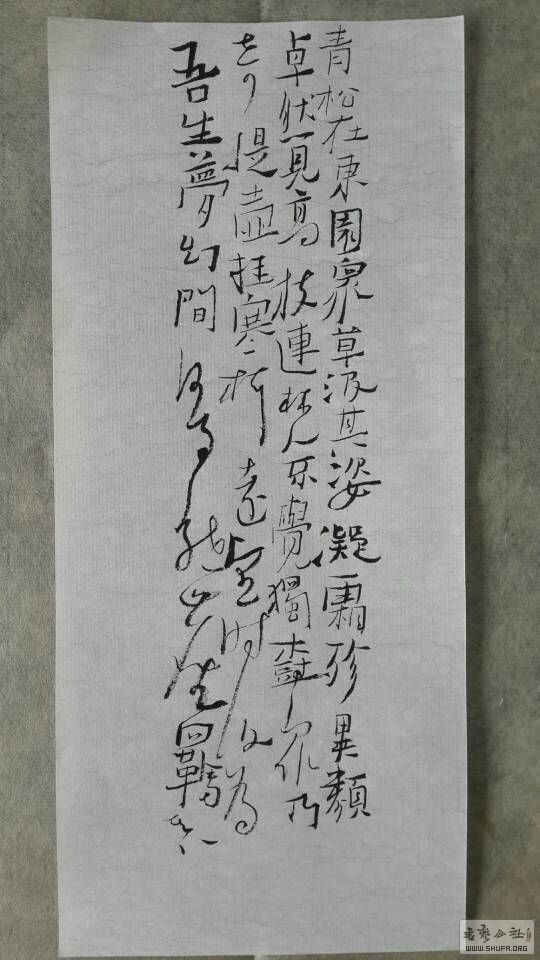 青松在東園眾草没其姿凝霜殄異類
卓然見高枝連林人不覺獨樹眾乃
奇提壺挂寒柯遠望时復為
吾生夢幻間何事紲塵羈
书艺公社
WWW.SHUFA.ORG